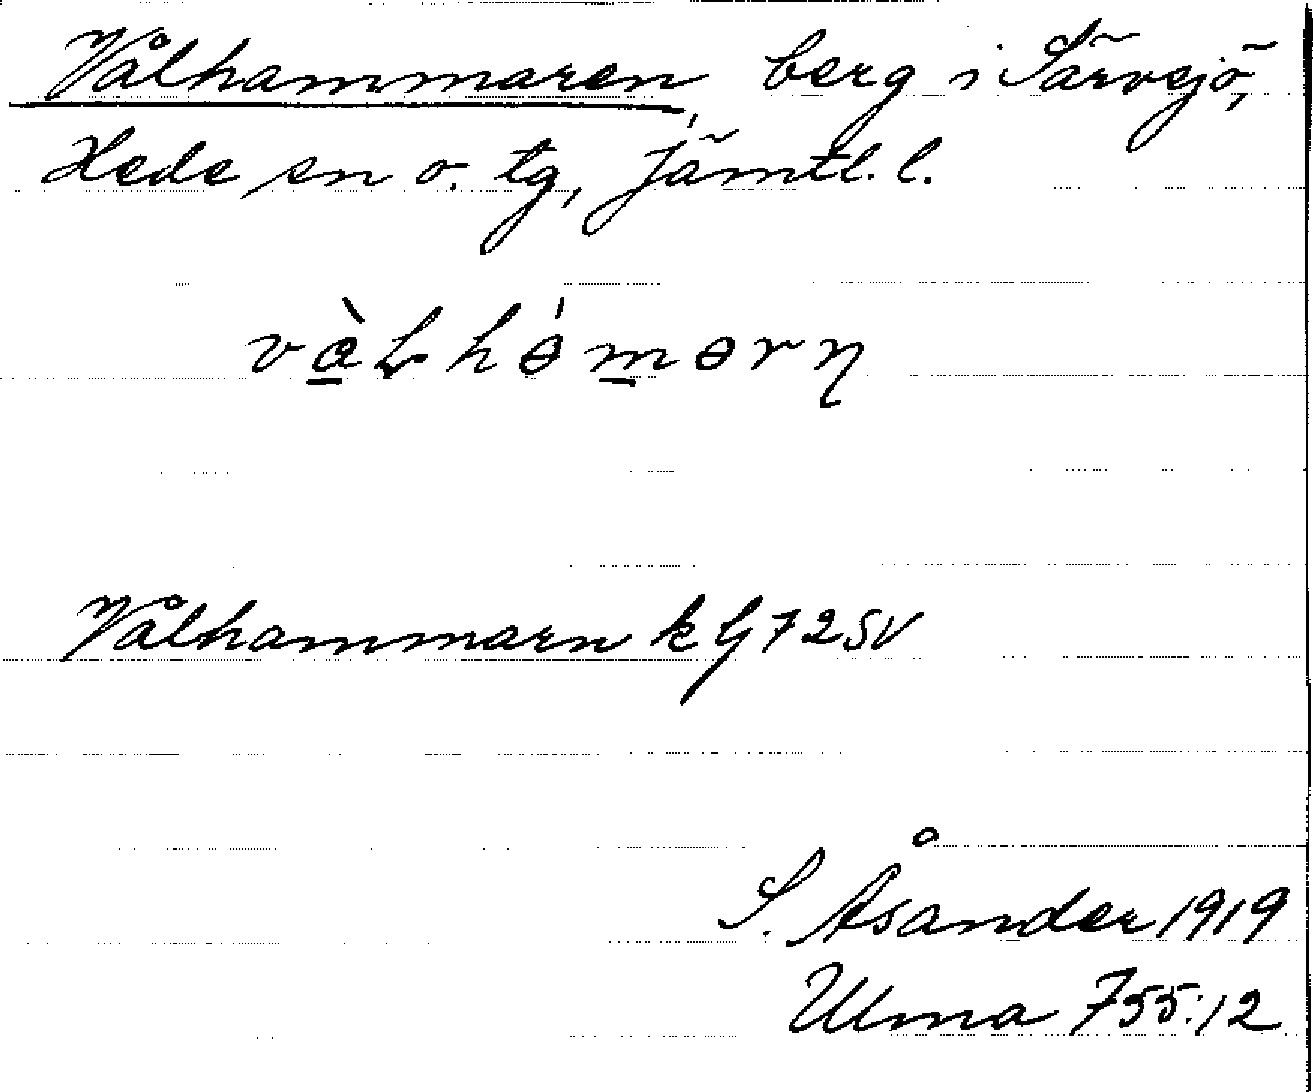 Vålhammaren, berg i Särvsjö,
Hede sn o. tg, Jämtl. l.
vàl̵hǿmørn̥
Vålhammarn k G 72 SV
S. Åsander 1919
Ulma 755:12